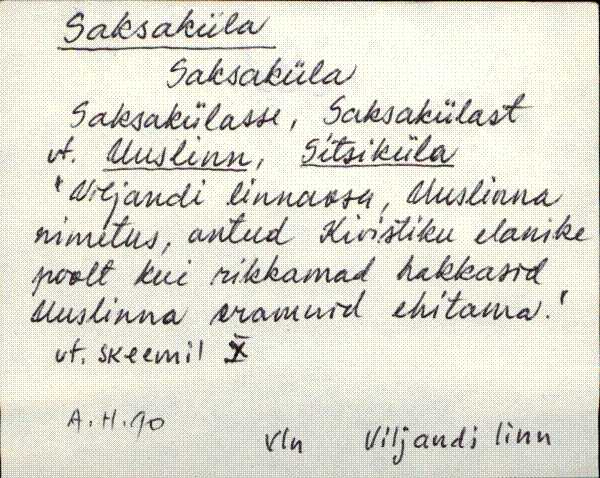 Saksaküla
Saksaküla
Saksakülasse, Saksakülast
vt. Uuslinn, Sitsiküla
"Viljandi linnaosa, Uuslinna
nimetus, antud Kivistiku elanike
poolt kui rikkamad hakkasid
Uuslinna eramuid ehitama."
vt. skeemil X
A.H.90
Vln Viljandi linn